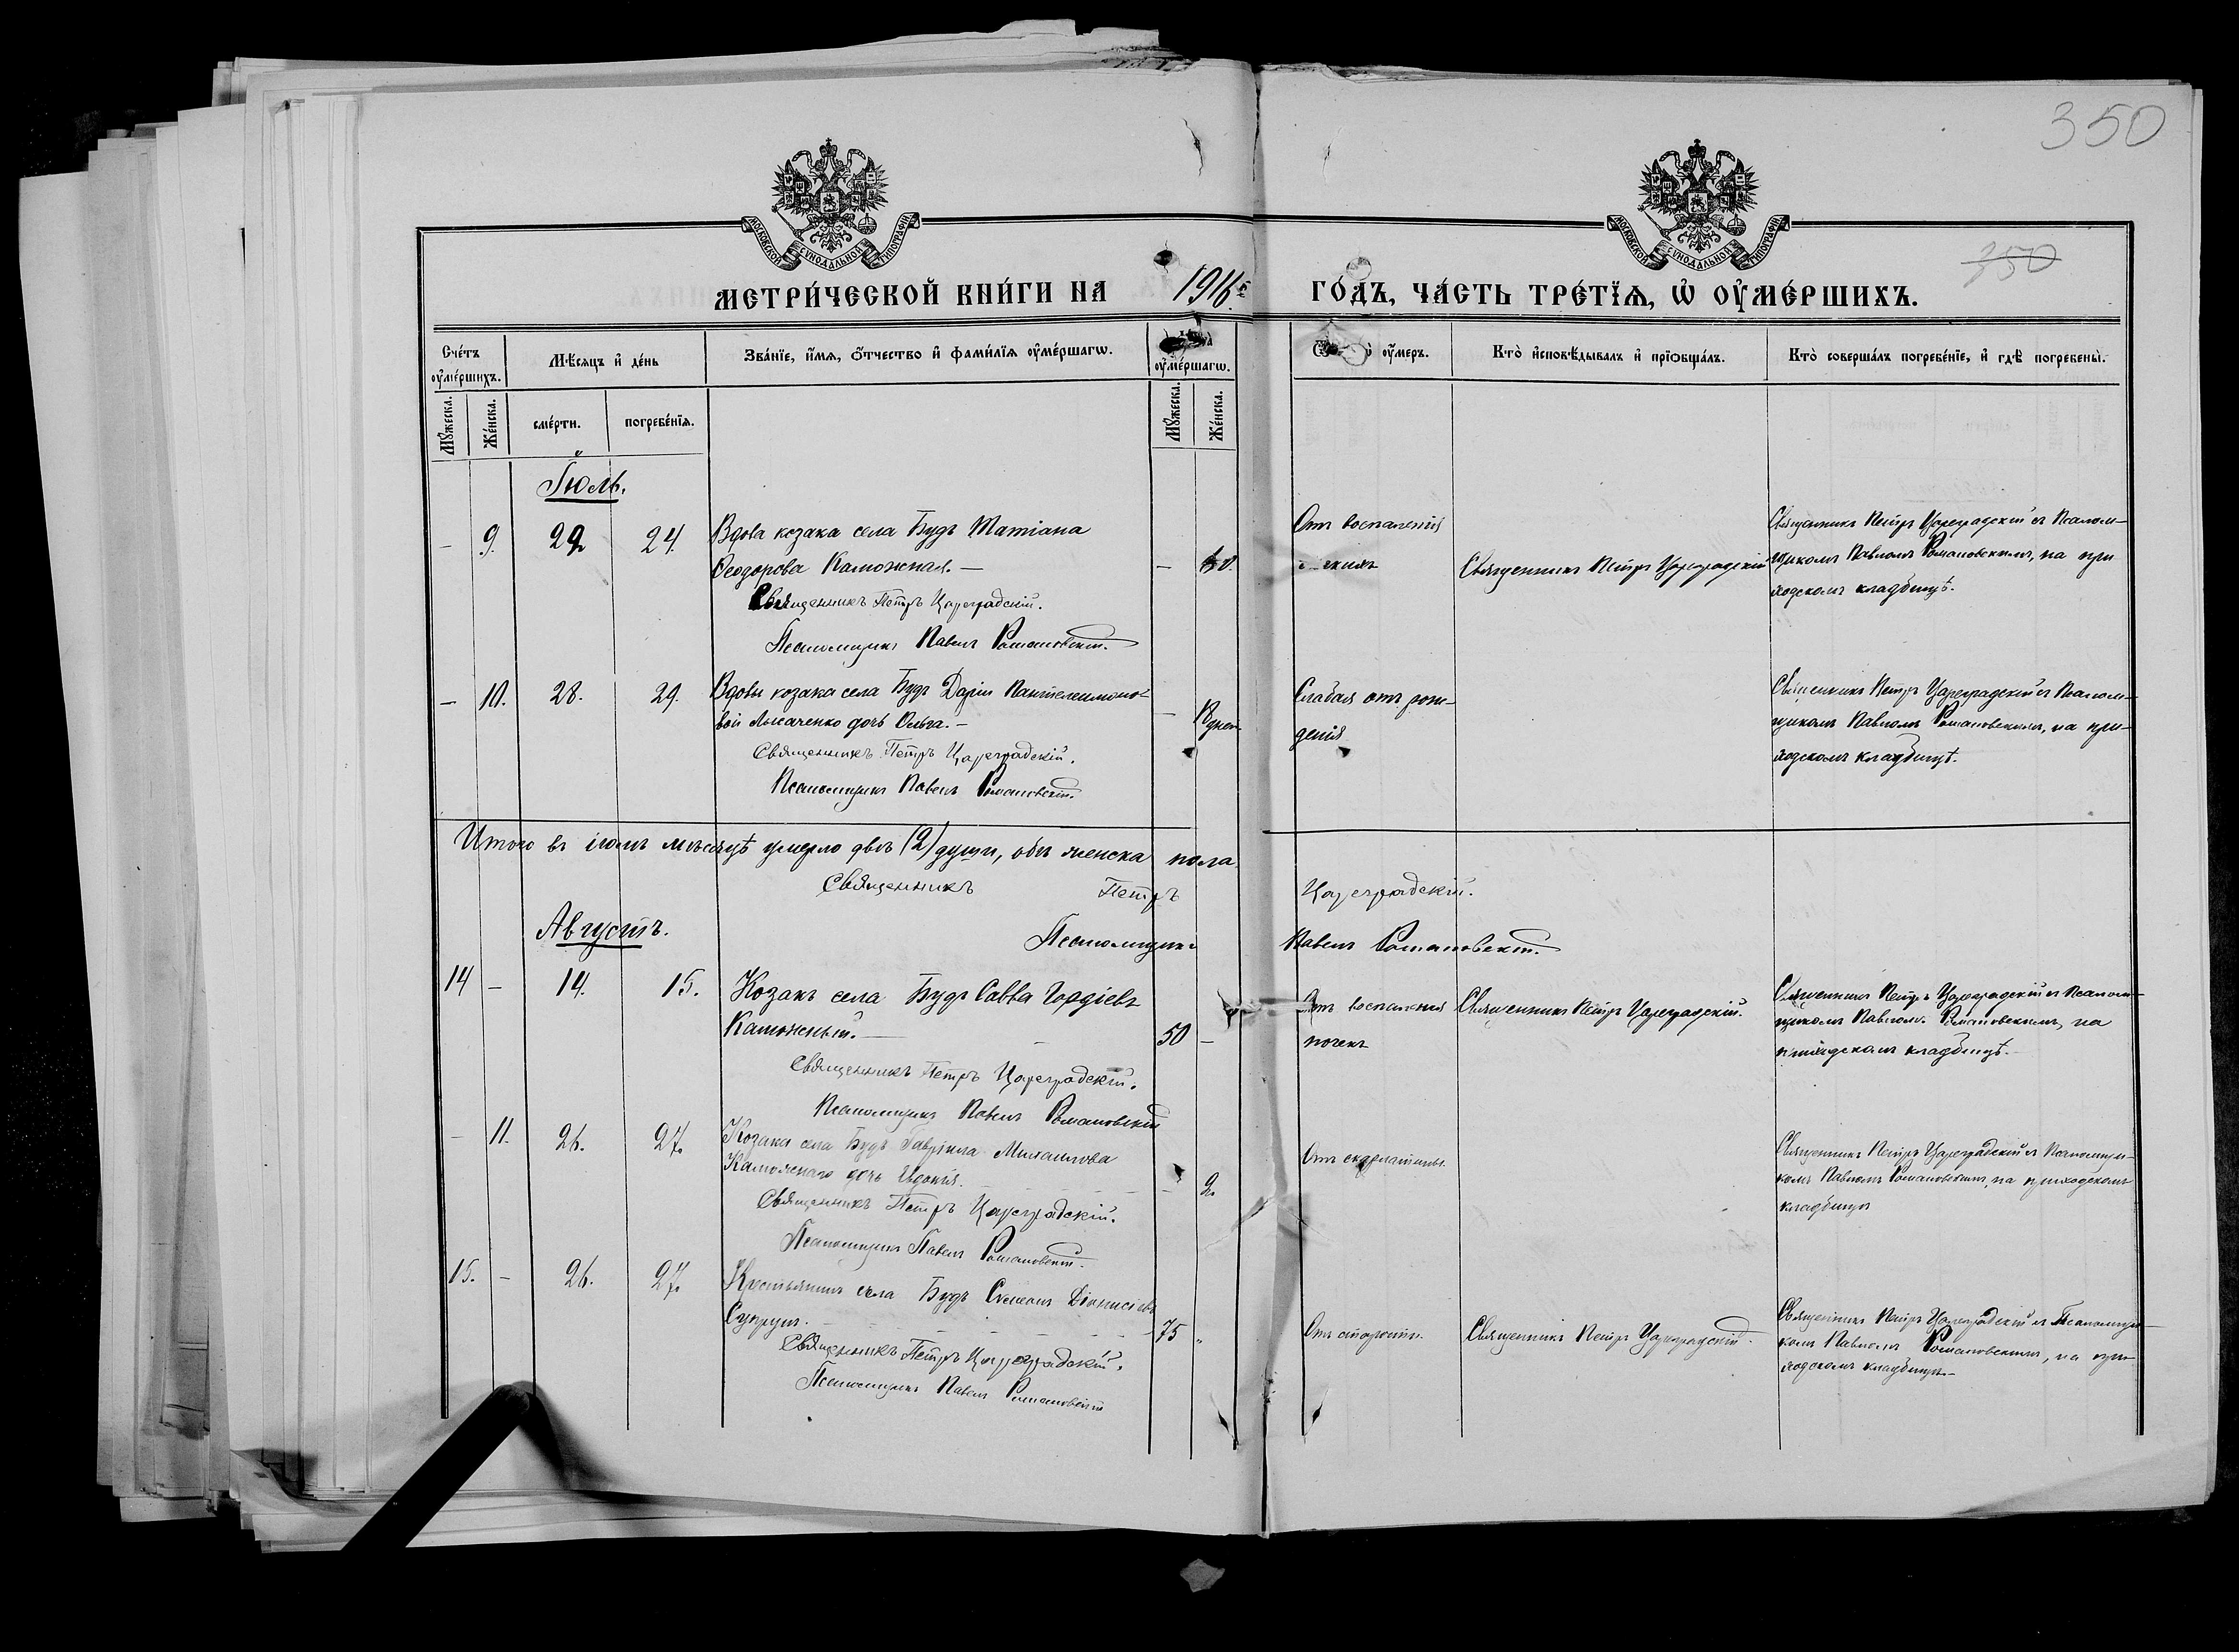 350
МОСКОВСКОЙ СѴНОДАЛЬНОЙ ТИПОГРАФІИ
МОСКОВСКОЙ СѴНОДАЛЬНОЙ ТИПОГРАФІИ
350
МЕТРИ́ЧЕСКОЙ КНИ́ГИ НА 1916 ГО́ДЪ, ЧА́СТЬ ТРЕ́ТЇѦ, Ѡ҆ ОУ҆МЕ́РШИХЪ.
Сче́тъ оу҆ме́ршихъ.
Мѣ́сѧцъ и҆ де́нь
Зва́нїе, и҆́мѧ, ѻ҆́тчество и҆ фами́лїѧ оу҆ме́ршагѡ.
оу҆ме́ршагѡ.
оу҆́меръ.
Кто̀ и҆сповѣ́дывалъ и҆ прїѻбща́лъ.
Кто̀ соверша́лъ погребе́нїе, и҆ гдѣ̀ погребены̀.
Мꙋ́жеска.
Же́нска.
сме́рти.
погребе́нїѧ.
Мꙋ́жеска.
Же́нска.
Іюль.
— 9. 24.
Вдова козака села Будъ Татіана
Ѳеодорова Каможная. —
Священникъ Петръ Цареградскій.
Псаломщикъ Павелъ Романовскій.
Отъ воспаленія
Священникъ Петръ Цареградскій
Священникъ Петръ Цареградскій съ Псалом-
щикомъ Павломъ Романовскимъ, на при
ходскомъ кладбищѣ.
— 10. 28. 29.
Вдовы козака села Будъ Даріи Пантелеимоно-
вой Лысаченко дочь Ольга. —
Священникъ Петръ Цареградскій.
Псаломщикъ Павелъ Романовскій.
Слабая отъ рож-
денія
Священникъ Петръ Цареградскій съ Псалом-
щикомъ Павломъ Романовскимъ, на при-
ходскомъ кладбищѣ.
Итого въ іюлѣ мѣсяцѣ умерло двѣ (2) души, обѣ женска пола
Священникъ Петръ Цареградскій.
Августъ.
Псаломщикъ Павелъ Романовскій.
14 — 14. 15.
Козакъ села Будъ Савва Гордіевъ
Каможный. — 50 —
Священникъ Петръ Цареградскій.
Псаломщикъ Павелъ Романовскій
Отъ воспаленія
почекъ
Священникъ Петръ Цареградскій.
Священникъ Петръ Цареградскій съ Псалом-
щикомъ Павломъ Романовскимъ, на
приходскомъ кладбищѣ.
— 11. 26. 27.
Козака села Будъ Гавріила Михаилова
Каможнаго дочь — 2.
Священникъ Петръ Цареградскій.
Псаломщикъ Павелъ Романовскій.
Отъ скарлатины.
Священникъ Петръ Цареградскій съ Псаломщи-
комъ Павломъ Романовскимъ, на приходскомъ
кладбищѣ
15. — 26. 27.
Крестьянинъ села Будъ Симеонъ Діонисіевъ
Супрунъ. 75 "
Священникъ Петръ Цареградскій.
Псаломщикъ Павелъ Романовскій
Отъ старости.
Священникъ Петръ Цареградскій.
Священникъ Петръ Цареградскій съ Псаломщи-
комъ Павломъ Романовскимъ, на при-
ходскомъ кладбищѣ. —